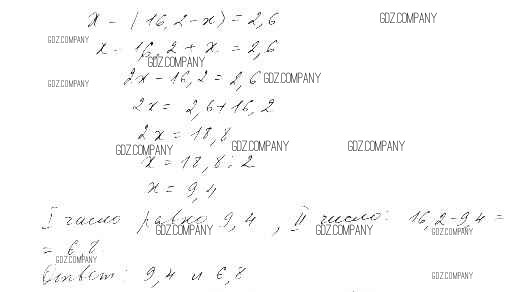 x - (16,2-x) = 2,6
x - 16,2 + x = 2,6
2x - 16,2 = 2,6
2x = 2,6+16,2
2x = 18,8
x = 18,8 : 2
x = 9,4
I число равно 9,4 , II число: 16,2-9,4 =
= 6,8
Ответ: 9,4 и 6,8
GDZ.COMPANY
GDZ.COMPANY
GDZ.COMPANY
GDZ.COMPANY
GDZ.COMPANY
GDZ.COMPANY
GDZ.COMPANY
GDZ.COMPANY
GDZ.COMPANY
GDZ.COMPANY
GDZ.COMPANY
GDZ.COMPANY
GDZ.COMPANY